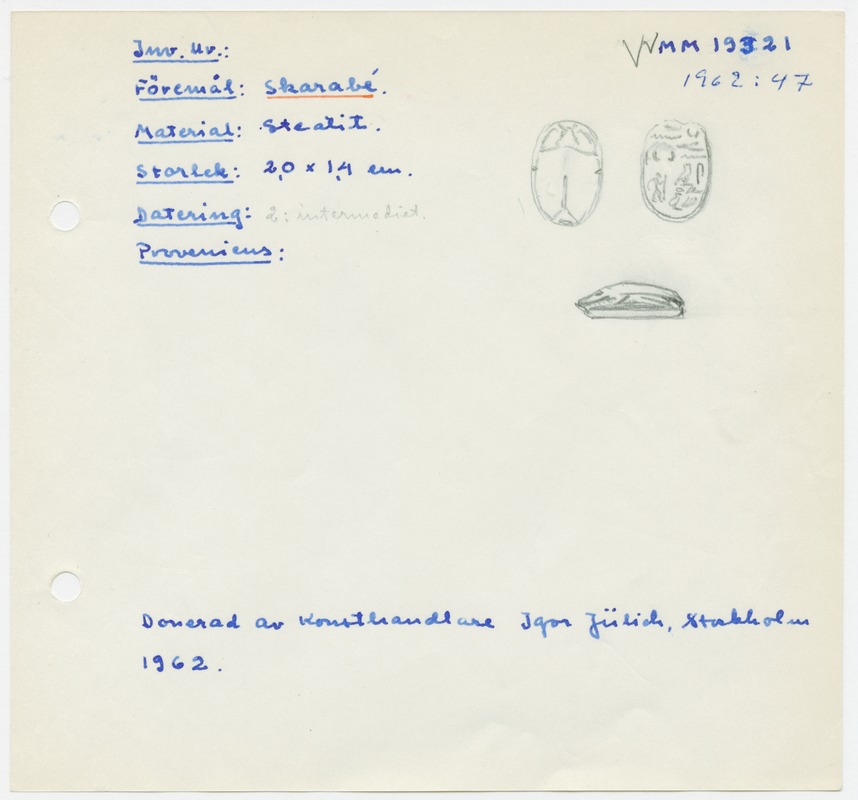 Inv. Nr.:
MM 19321
1962:47
Föremål: Skarabé.
Material: Steatit.
Storlek: 2,0 x 1,4 cm.
Datering: 2: intermediet.
Proveniens:
Donerad av Konsthandlare Igor Jülich, Stockholm
1962.